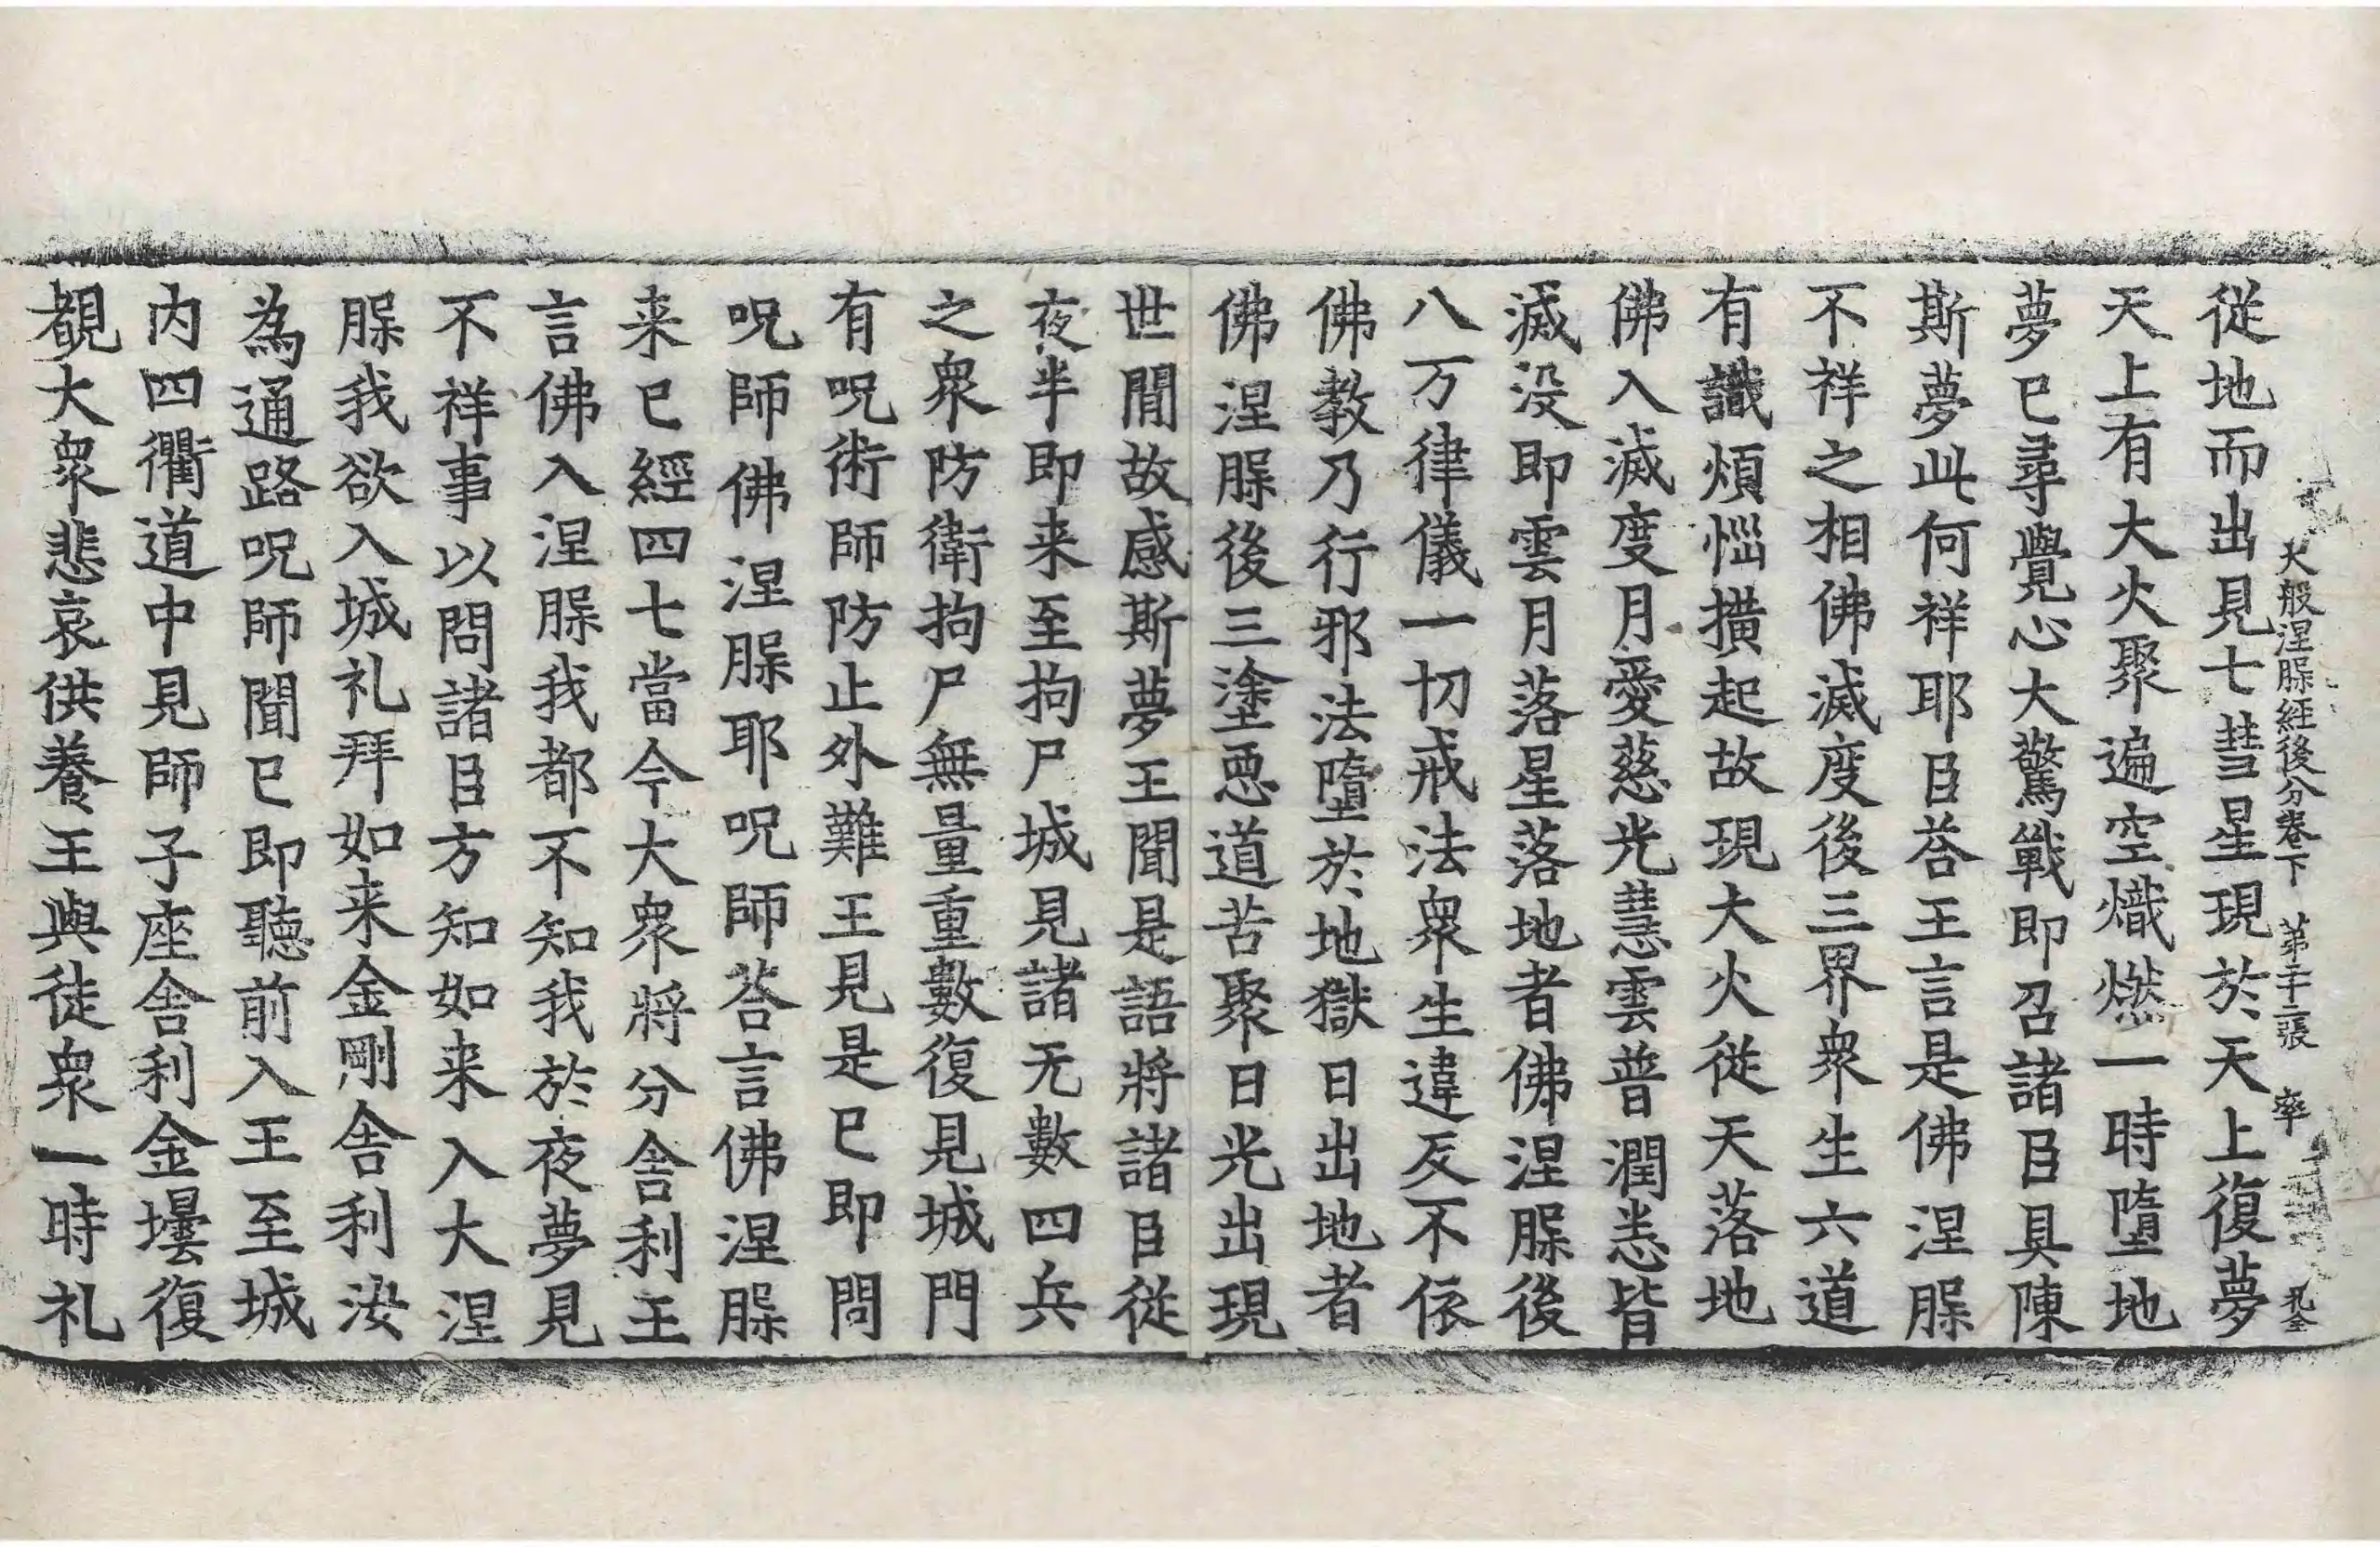 大般涅槃經後分卷下　第二十二張　率
從地而出見七彗星現於天上復夢
天上有大火聚遍空熾燃一時墮地
夢已尋覺心大驚戰即召諸臣具陳
斯夢此何祥耶臣荅王言是佛涅槃
不祥之相佛滅度後三界衆生六道
有識煩惱撗起故現大火從天落地
佛入滅度月愛慈光慧雲普潤悉皆
滅没即雲月落星落地者佛涅槃後
八万律儀一切戒法衆生違反不依
佛教乃行邪法墮於地獄日出地者
佛涅槃後三塗惡道苦聚日光出現
世間故感斯夢王聞是語將諸臣從
夜半即来至拘尸城見諸无數四兵
之衆防衛拘尸無量重數復見城門
有呪術師防止外難王見是已即問
呪師佛涅槃耶呪師荅言佛涅槃
来已經四七當今大衆將分舍利王
言佛入涅槃我都不知我於夜夢見
不祥事以問諸臣方知如来入大涅
槃我欲入城礼拜如来金剛舍利汝
為通路呪師聞已即聽前入王至城
内四衢道中見師子座舍利金壜復
覩大衆悲哀供養王與徒衆一時礼